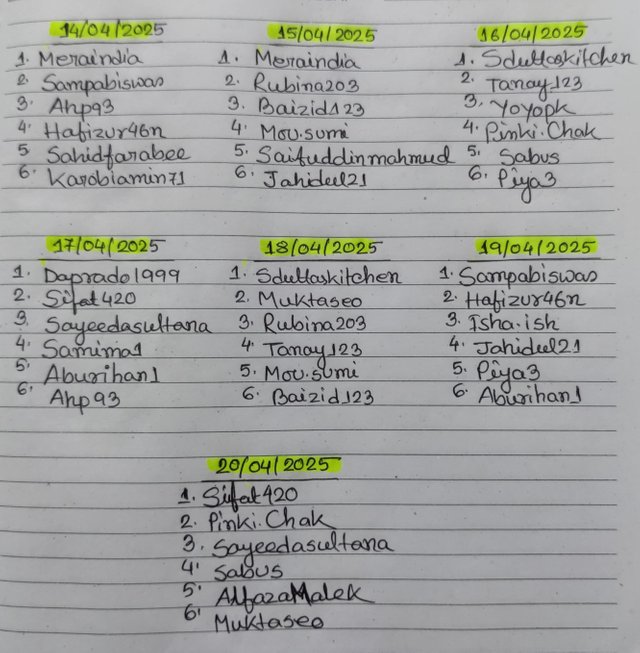 14/04/2025
1. Meraindia
2. Sampabiswas
3. Ahp93
4. Hafizur46n
5 Sahidfarabee
6. Karobiamin71
15/04/2025
1. Meraindia
2. Rubina203
3. Baizid123
4. Mou.sumi
5. Saifuddinmahmud
6. Jahidul21
16/04/2025
1. Sduttaskitchen
2. Tanay123
3. Yoyopk
4. Pinki.Chak
5. Sabus
6. Piya3
17/04/2025
1. Daprado1999
2. Sifat420
3. Sayeedasultana
4. Samima1
5. Aburihan1
6. Ahp93
18/04/2025
1. Sduttaskitchen
2. Muktaseo
3. Rubina203
4. Tanay123
5. Mou.sumi
6. Baizid123
19/04/2025
1. Sampabiswas
2. Hafizur46n
3. Isha.ish
4. Jahidul21
5. Piya3
6. Aburihan1
20/04/2025
1. Sifat420
2. Pinki.Chak
3. Sayeedasultana
4. Sabus
5. AlfazaMalek
6. Muktaseo